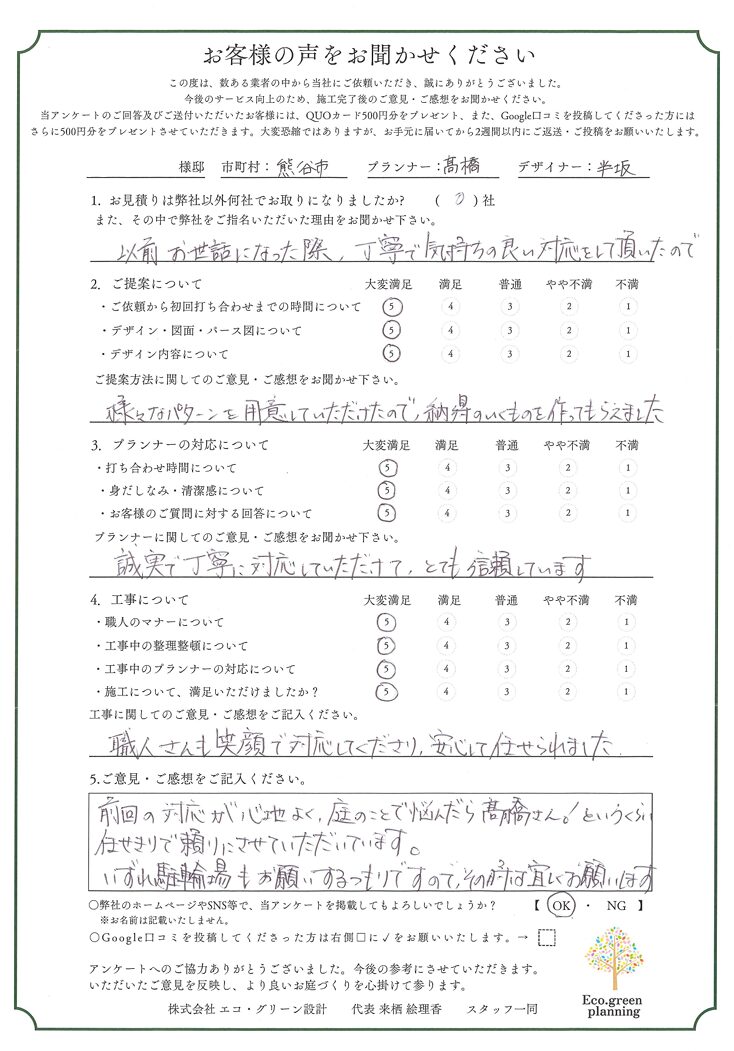 お客様の声をお聞かせください
この度は、数ある業者の中から当社にご依頼いただき、誠にありがとうございました。
今後のサービス向上のため、施工完了後のご意見・ご感想をお聞かせください。
当アンケートのご回答及びご送付いただいたお客様には、QUOカード500円分をプレゼント、また、Google口コミを投稿してくださった方には
さらに500円分をプレゼントさせていただきます。大変恐縮ではありますが、お手元に届いてから2週間以内にご返送・ご投稿をお願いいたします。
様邸 市町村：熊谷市 プランナー：髙橋 デザイナー：半坂
1. お見積りは弊社以外何社でお取りになりましたか? ( 0 ) 社
また、その中で弊社をご指名いただいた理由をお聞かせ下さい。
以前お世話になった際、丁寧で気持ちの良い対応をして頂いたので
2. ご提案について 大変満足 満足 普通 やや不満 不満
・ご依頼から初回打ち合わせまでの時間について 5 4 3 2 1
・デザイン・図面・パース図について 5 4 3 2 1
・デザイン内容について 5 4 3 2 1
ご提案方法に関してのご意見・ご感想をお聞かせ下さい。
様々なパターンを用意していただけたので、納得のいくものを作ってもらえました
3. プランナーの対応について 大変満足 満足 普通 やや不満 不満
・打ち合わせ時間について 5 4 3 2 1
・身だしなみ・清潔感について 5 4 3 2 1
・お客様のご質問に対する回答について 5 4 3 2 1
プランナーに関してのご意見・ご感想をお聞かせ下さい。
誠実で丁寧に対応していただけて、とても信頼しています
4. 工事について 大変満足 満足 普通 やや不満 不満
・職人のマナーについて 5 4 3 2 1
・工事中の整理整頓について 5 4 3 2 1
・工事中のプランナーの対応について 5 4 3 2 1
・施工について、満足いただけましたか？ 5 4 3 2 1
工事に関してのご意見・ご感想をご記入ください。
職人さんも笑顔で対応してくださり、安心して任せられました。
5.ご意見・ご感想をご記入ください。
前回の対応が心地よく、庭のことで悩んだら髙橋さん！というくらい
任せきりで頼りにさせていただいています。
いずれ駐輪場もお願いするつもりですので、その時は宜しくお願いします
○弊社のホームページやSNS等で、当アンケートを掲載してもよろしいでしょうか？ 【 OK ・ NG 】
※お名前は記載いたしません。
○Google口コミを投稿してくださった方は右側□に✓をお願いいたします。→
アンケートへのご協力ありがとうございました。今後の参考にさせていただきます。
いただいたご意見を反映し、より良いお庭づくりを心掛けて参ります。
株式会社 エコ・グリーン設計 代表 来栖 絵理香 スタッフ一同
Eco.green
planning